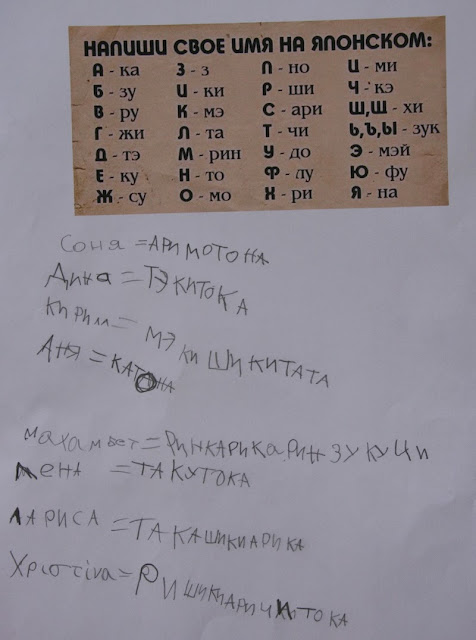 НАПИШИ СВОЕ ИМЯ НА ЯПОНСКОМ:
А - ка З - з П - но Ц - ми
Б - зу И - ки Р - ши Ч - кэ
В - ру К - мэ С - ари Ш,Щ - хи
Г - жи Л - та Т - чи Ь,Ъ,Ы - зук
Д - тэ М - рин У - до Э - мэй
Е - ку Н - то Ф - лу Ю - фу
Ж - су О - мо Х - ри Я - на
Соня =АРИМОТОНА
Дина =ТЭКИТОКА
Кирилл= МЭКИШИКИТАТА
Аня =КАТОНА
Махамбет=РИНКАРИКАРИНЗУКУЦИ
ЛЕНА =ТАКУТОКА
ЛАРИСА =ТАКАШИКИАРИКА
Хрістіна=РИШИКИАРИЧКИТОКА